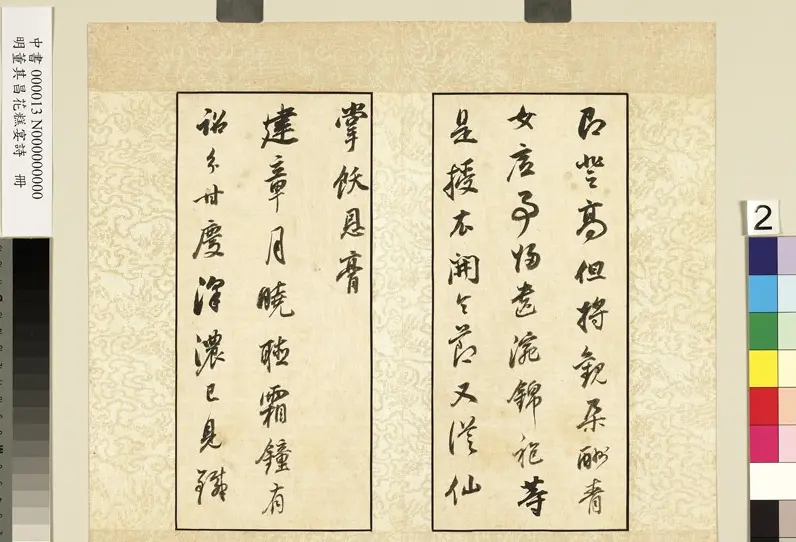 中書000013 N000000000
明董其昌花糕宴詩 冊
2
即登高但將觀朵酬青
女底事歸遺浣錦袍等
是授衣開令節又從仙
掌飫恩膏
建章月曉聽霜鐘有
詔分甘慶澤濃已見